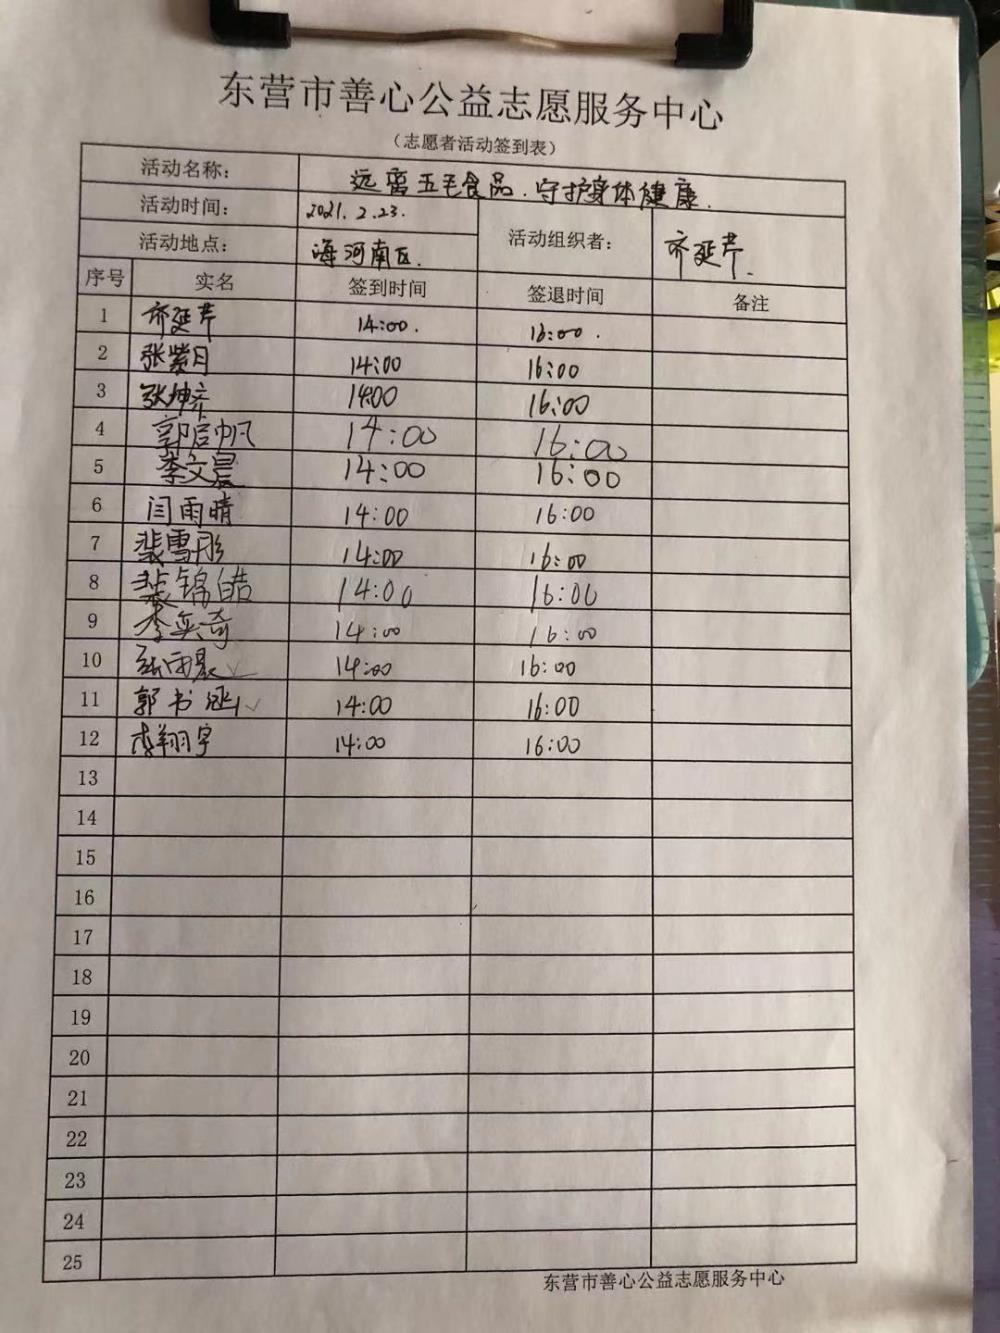 东营市善心公益志愿服务中心
（志愿者活动签到表）
活动名称： 远离五毛食品.守护身体健康.
活动时间： 2021.2.23. 活动组织者： 齐延芹.
活动地点： 海河南区.
序号 实名 签到时间 签退时间 备注
1 齐延芹 14:00. 16:00.
2 张紫日 14:00 16:00
3 张坤齐 14:00 16:00
4 郭启帆 14:00 16:00
5 李文晨 14:00 16:00
6 闫雨晴 14:00 16:00
7 裴雪彤 14:00 16:00
8 裴锦皓 14:00 16:00
9 李奕奇 14:00 16:00
10 张雨晨 14:00 16:00
11 郭书涵 14:00 16:00
12 李翔宇 14:00 16:00
13
14
15
16
17
18
19
20
21
22
23
24
25
东营市善心公益志愿服务中心